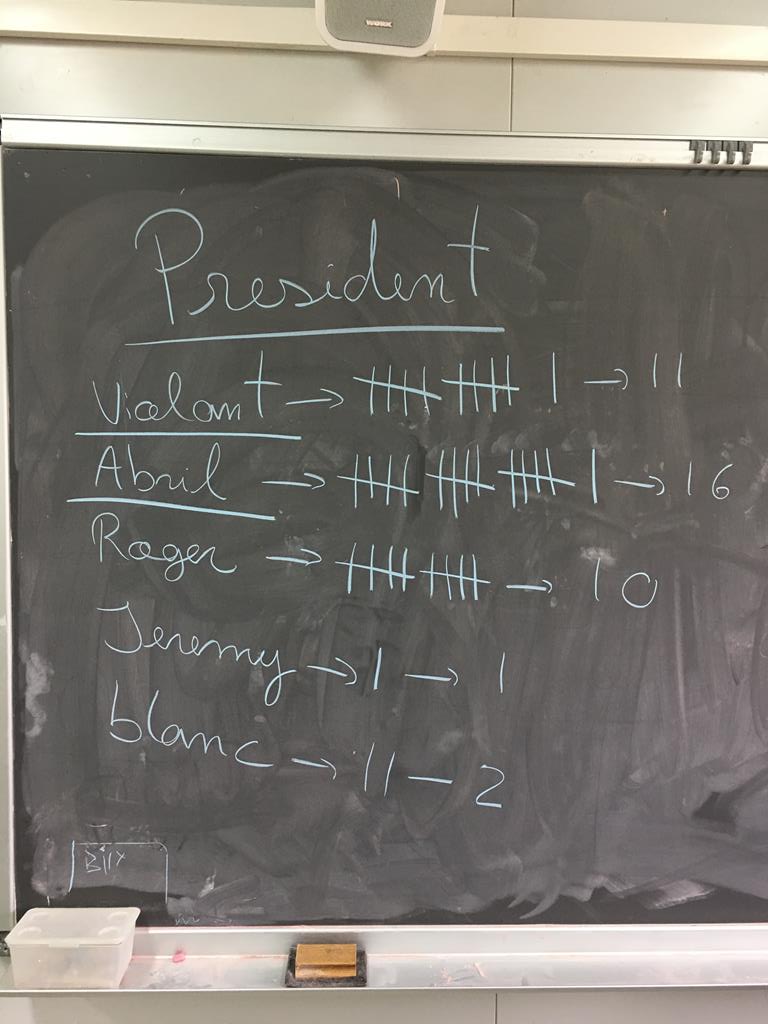 WORK
President
Violant → 𝍸 𝍸 | → 11
Abril → 𝍸 𝍸 𝍸 | → 16
Roger → 𝍸 𝍸 → 10
Jeremy → | → 1
blanc → || — 2